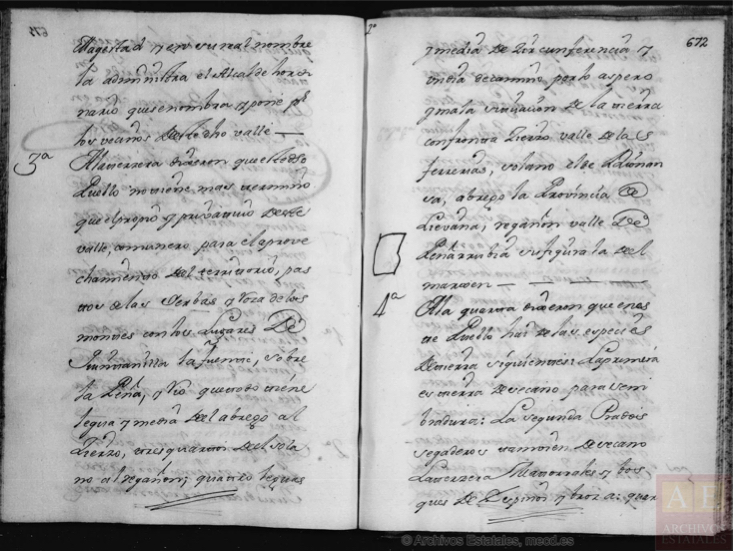 673
Magestad y en su real nombre
la administra el Alcalde hordi
nario que se nombra y pone pr
los vecinos deste dho valle
3a
A la terzera dixeron que el dho
Pueblo no tiene mas termino
que el propio y privativo deste
valle, comunero para el aprove
chamiento del territorio, pas
tos de las Yerbas y Roza de los
montes con los Lugares De
la fuente, sobre
la Peña, y Rio que todo tiene
legua y media del abrego al
Zierzo, tres quartos del sola
no al regañon; quatro leguas
1a
672
y media de Zircunferencia y
por lo aspero
y mala situacion de la tierra
confronta Zierzo valle de las
ferrerias, solano el de
va, abrego la Provincia de
Lievana, regañon valle De
Peñarrubia su figura la del
marxen
4a
A la quarta dixeron que en es
te Pueblo hai de las especies
de tierra siguientes: La primera
es tierra de secano para sem
bradura: La segunda Prados
segaderos tamvien de secano
La terzera Matorrales y bos
ques de Espinos y broza: quar
AE
ARCHIVOS
ESTATALES
© Archivos Estatales, mecd.es